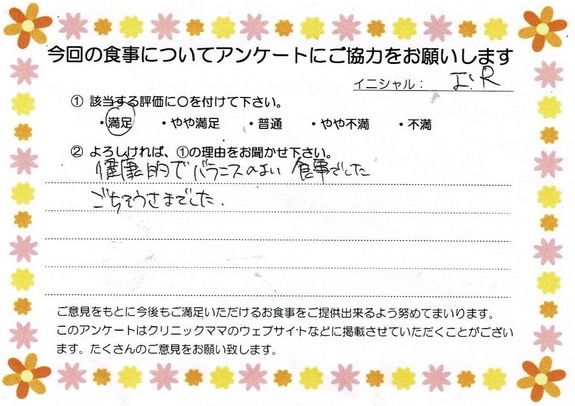 今回の食事についてアンケートにご協力をお願いします
イニシャル： I.R
① 該当する評価に〇を付けて下さい。
・満足 ・やや満足 ・普通 ・やや不満 ・不満
② よろしければ、①の理由をお聞かせ下さい。
健康的でバランスのよい食事でした
ごちそうさまでした.
ご意見をもとに今後もご満足いただけるお食事をご提供出来るよう努めてまいります。
このアンケートはクリニックママのウェブサイトなどに掲載させていただくことがござい
ます。たくさんのご意見をお願い致します。